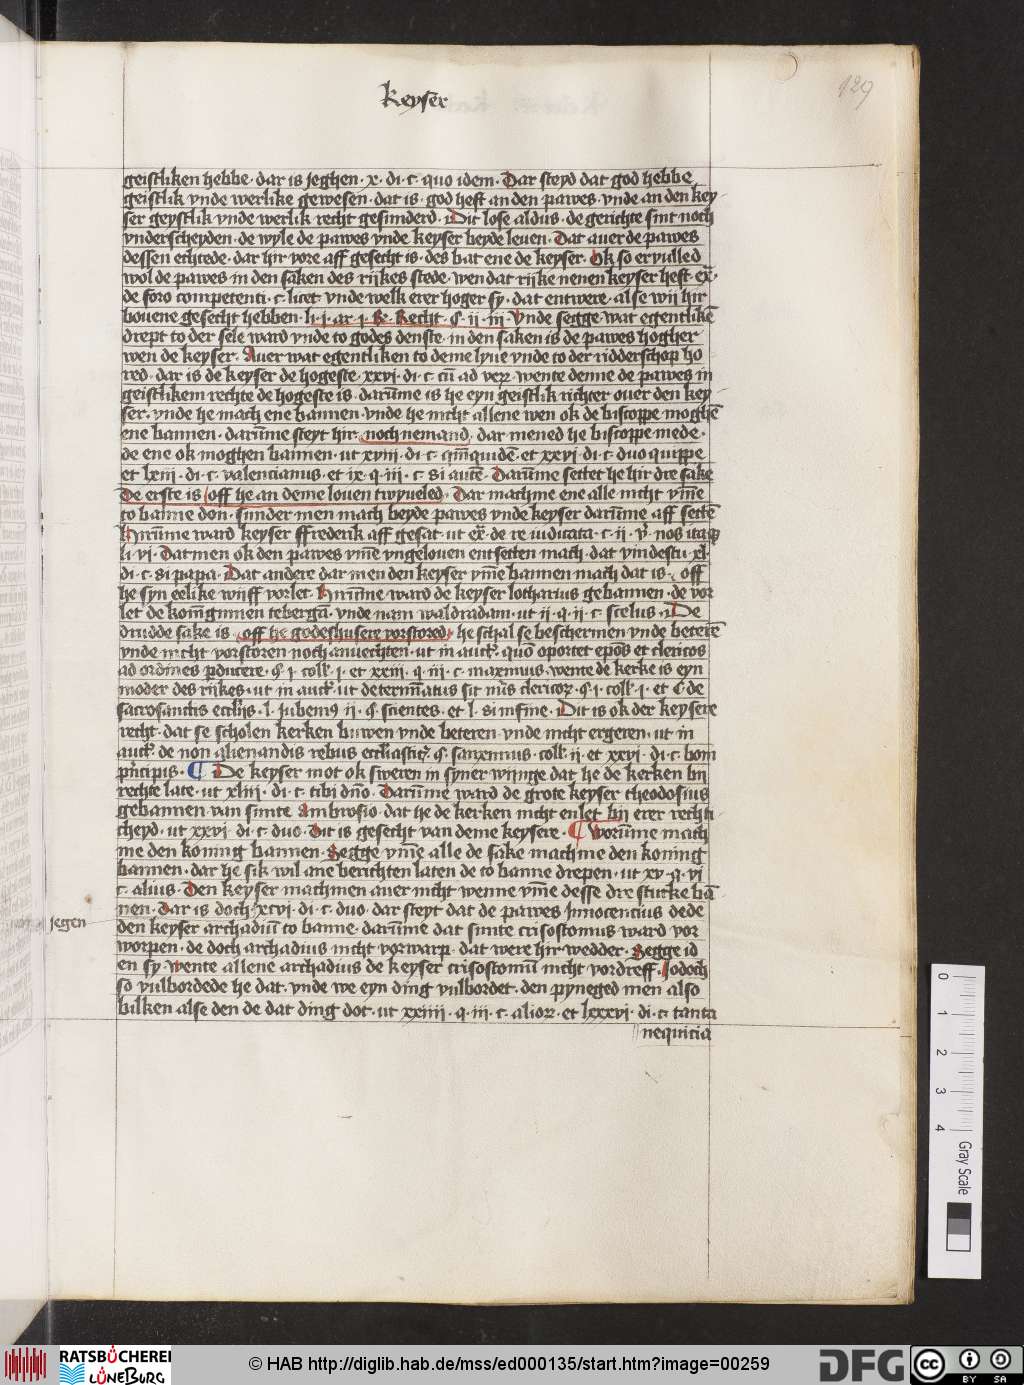 keyser
129
geistliken hebbe · dar is jeghen · x · di · c · quo idem · Dar steyd dat god hebbe
geistlik vnde werlike gewesen · dat is · god heft an den pawes · vnde an den key
ser geystlik vnde werlik recht gesunderd · Dit lose aldus · de gerichte sint noch
vnderscheyden · de wyle de pawes vnde keyser beyde leuen · Dat auer de pawes
dessen echtede · dar hir vore aff gesecht is · des bat ene de keyser · Ok so ervulled
wol de pawes in den saken des rijkes stede · wen dat rijke nenen keyser heft · ex̄ ·
de foro competenti · c · licet vnde welk erer hoger sy · dat entwere · alse wij hir
bouene gesecht hebben · li · i · ar · i · R · Recht · ¶ · ij · iii · Vnde segge · wat egentlikē
drept to der sele ward vnde to godes denste · in den saken is de pawes hogher
wen de keyser · Auer wat egentliken to deme lyue vnde to der ridderschop ho
red · dar is de keyser de hogeste · xxvi · di · c · cū ad ver · wente denne de pawes in
geistlikem rechte de hogeste is · darūme is he eyn geistlik richter ouer den key
ser · vnde he mach ene bannen · vnde he nicht allene wen ok de biscoppe moghē
ene bannen · darūme steyt hir · noch nemand · dar mened he biscoppe mede ·
de ene ok moghen bannen · ut xviii · di · c · qm̄quidē · et xxvi · di · c · duo quippe
et lxiii · di · c · valencianus · et ix · q · iii · c · si autē · Darūme settet he hir dre sake
De erste is off he an deme louen twyueled · Dar mach me ene alle nicht vm̄e
to banne don · sunder men mach beyde pawes vnde keyser darūme aff settē
Hirūme ward keyser ffrederik aff gesat · ut ex̄ · de re iudicata · c · ii · v̄ · nos itaq
li · vi · Dat men ok den pawes vm̄e vngelouen entsetten mach · dat vindestu · xl ·
di · c · si papa · Dat andere dar men den keyser vm̄e bannen mach dat is · off
he syn eelike wijff vorlet · Hirūme ward de keyser lotharius gebannen · de vor
let de koniginnen tebergā · vnde nam waldradam · ut ii · q · ii · c · scelus · De
drudde sake is · off he godeshusere vorstored · he schal se beschermen vnde beterē
vnde nicht vorstoren noch anvechten · ut in auct · quō oportet epōs et clericos
ad ordines p̄ducere · ¶ i · coll · i · et xxiii · q · iii · c · maximus · wente de kerke is eyn
moder des rijkes · ut in auct · ut determinatus sit nūs clericor · ¶ i · coll · i · et C de
sacrosanctis ecclijs · l · Jubemꝰ ij · ¶ · scientes · et l · si in fine · Dit is ok der keysere
recht · dat se scholen kerken buwen vnde beteren · vnde nicht ergeren · ut in
auct · de non alienandis rebus ecclīasticꝭ · ¶ · sanximus · coll · ii · et xxvi · di · c · boni
prīcipis · ¶ De keyser mot ok sweren in syner wijnge dat he de kerken bij
rechte late · ut xliij · di · c · tibi dn̄o · Darūme ward de grote keyser theodosius
gebannen van sunte Ambrosio · dat he de kerken nicht en let bij erer rechti
cheyd · ut xxvi · di · c · duo · Dit is gesecht van deme keysere · ¶ Worūme mach
me den koning bannen · Segge vm̄e alle de sake mach me den koning
bannen · dar he sik wil ane berichten laten de to banne drepen · ut xv · q · vi
c · alius · Den keyser mach men auer nicht wenne vm̄e desse dre stucke bā
nen · Dar is doch xcvi · di · c · duo · dar steyt dat de pawes Innocencius dede
jegen
den keyser archadiū to banne · darūme dat sunte crisostomus ward vor
worpen · de doch archadius nicht vorwarp · dat were hir wedder · Segge id
en sy · Wente allene archadius de keyser crisostomū nicht vordreff · Jodoch
so vulbordede he dat · vnde we eyn ding vulbordet · den pyneged men also
bilken alse den de dat ding dot · ut xxiiij · q · iii · c · alior · et lxxxvi · di · c · tanta
nequicia
0
1
2
3
4
Gray Scale
RATSBÜCHEREI
LÜNEBURG
© HAB http://diglib.hab.de/mss/ed000135/start.htm?image=00259
DFG
cc
BY SA